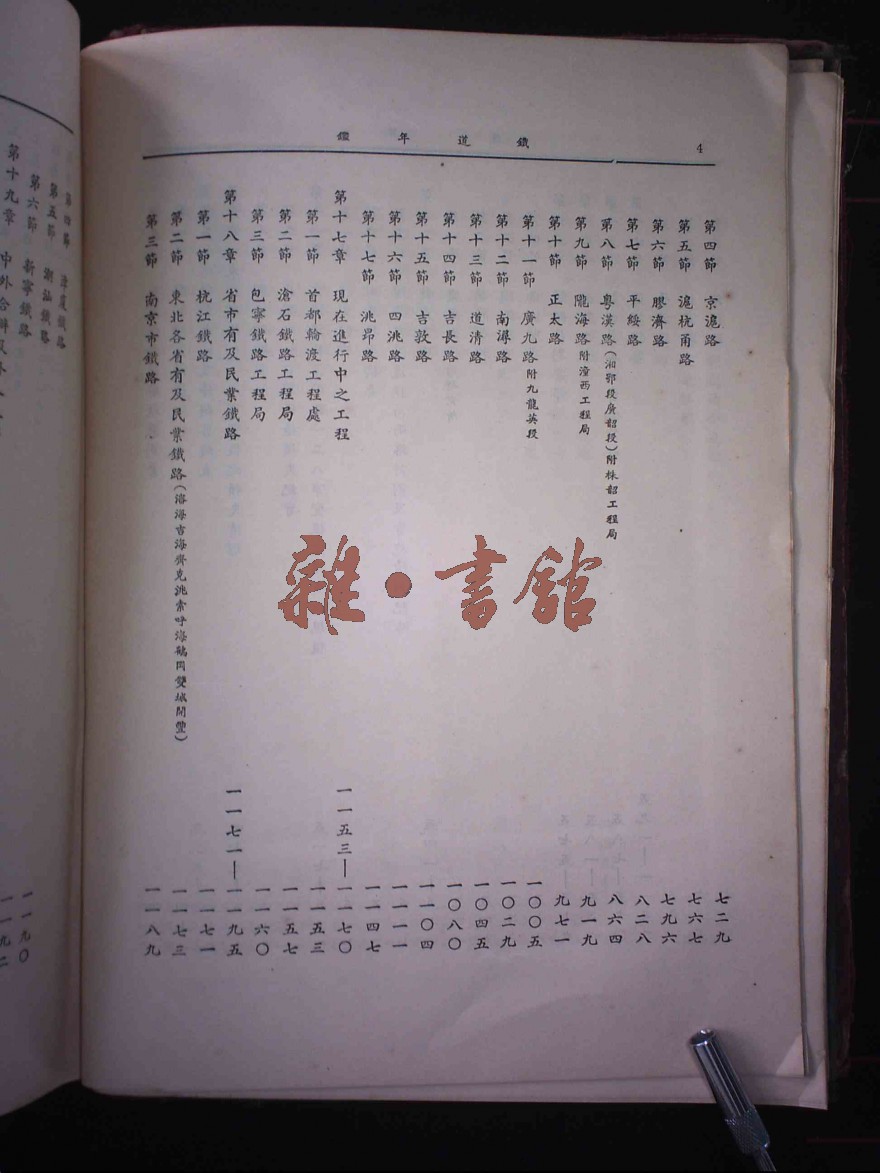 鐵道年鑑
4
第四節 京滬路 七二九
第五節 滬杭甬路 七六七
第六節 膠濟路 七九六
第七節 平綏路 八二八
第八節 粵漢路(湘鄂段廣韶段)附株韶工程局 八六四
第九節 隴海路附潼西工程局 九一九
第十節 正太路 九七一
第十一節 廣九路附九龍英段 一〇〇五
第十二節 南潯路 一〇二九
第十三節 道清路 一〇四五
第十四節 吉長路 一〇八〇
第十五節 吉敦路 一一〇四
第十六節 四洮路 一一一一
第十七節 洮昂路 一一四七
第十七章 現在進行中之工程 一一五三—一一七〇
第一節 首都輪渡工程處 一一五三
第二節 滄石鐵路工程局 一一五七
第三節 包寧鐵路工程局 一一六〇
第十八章 省市有及民業鐵路 一一七一—一一九五
第一節 杭江鐵路 一一七一
第二節 東北各省有及民業鐵路(瀋海吉海齊克洮索呼海鶴岡雙城開豐) 一一七三
第三節 南京市鐵路 一一八九
第四節 鐵路 一一九〇
第五節 潮汕鐵路 一一九二
第六節 新寧鐵路
第十九章 中外合辦及
雜·書館